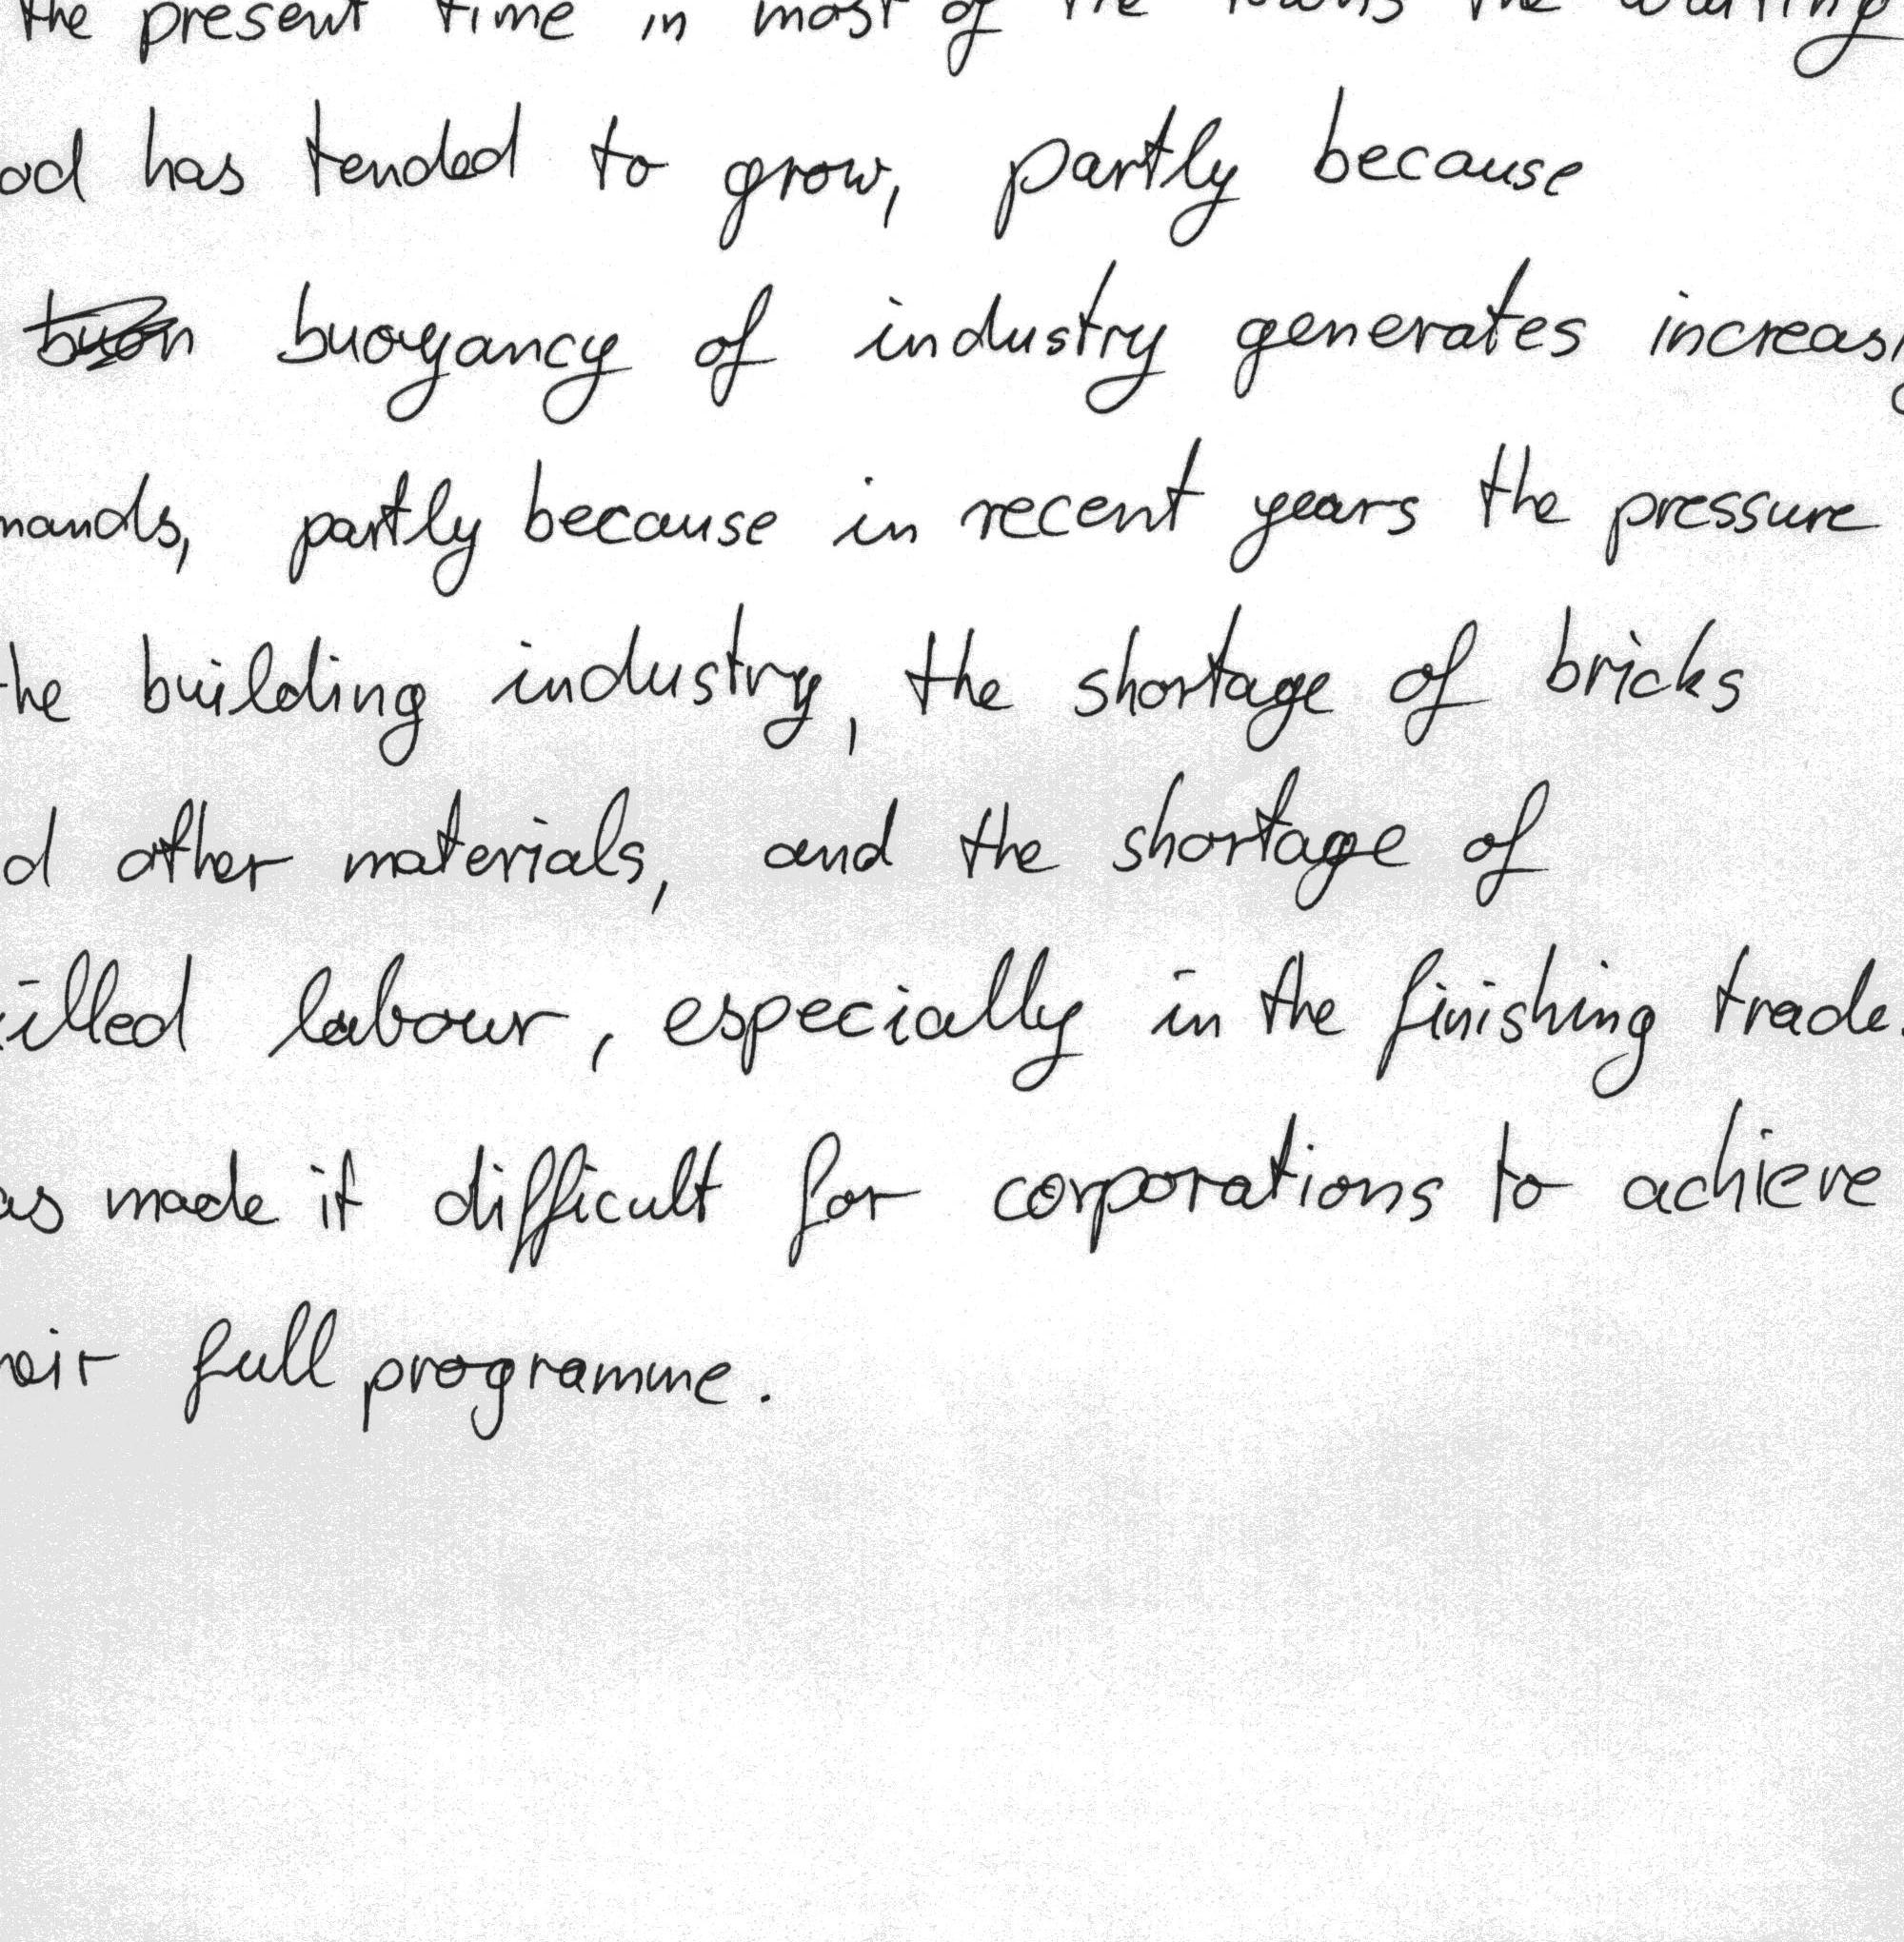 the present time in most of the towns the waiting
od has tended to grow, partly because
buoyancy of industry generates increasi
mands, partly because in recent years the pressure
the building industry, the shortage of bricks
d other materials, and the shortage of
illed labour, especially in the finishing trade
as made it difficult for corporations to achieve
heir full programme.